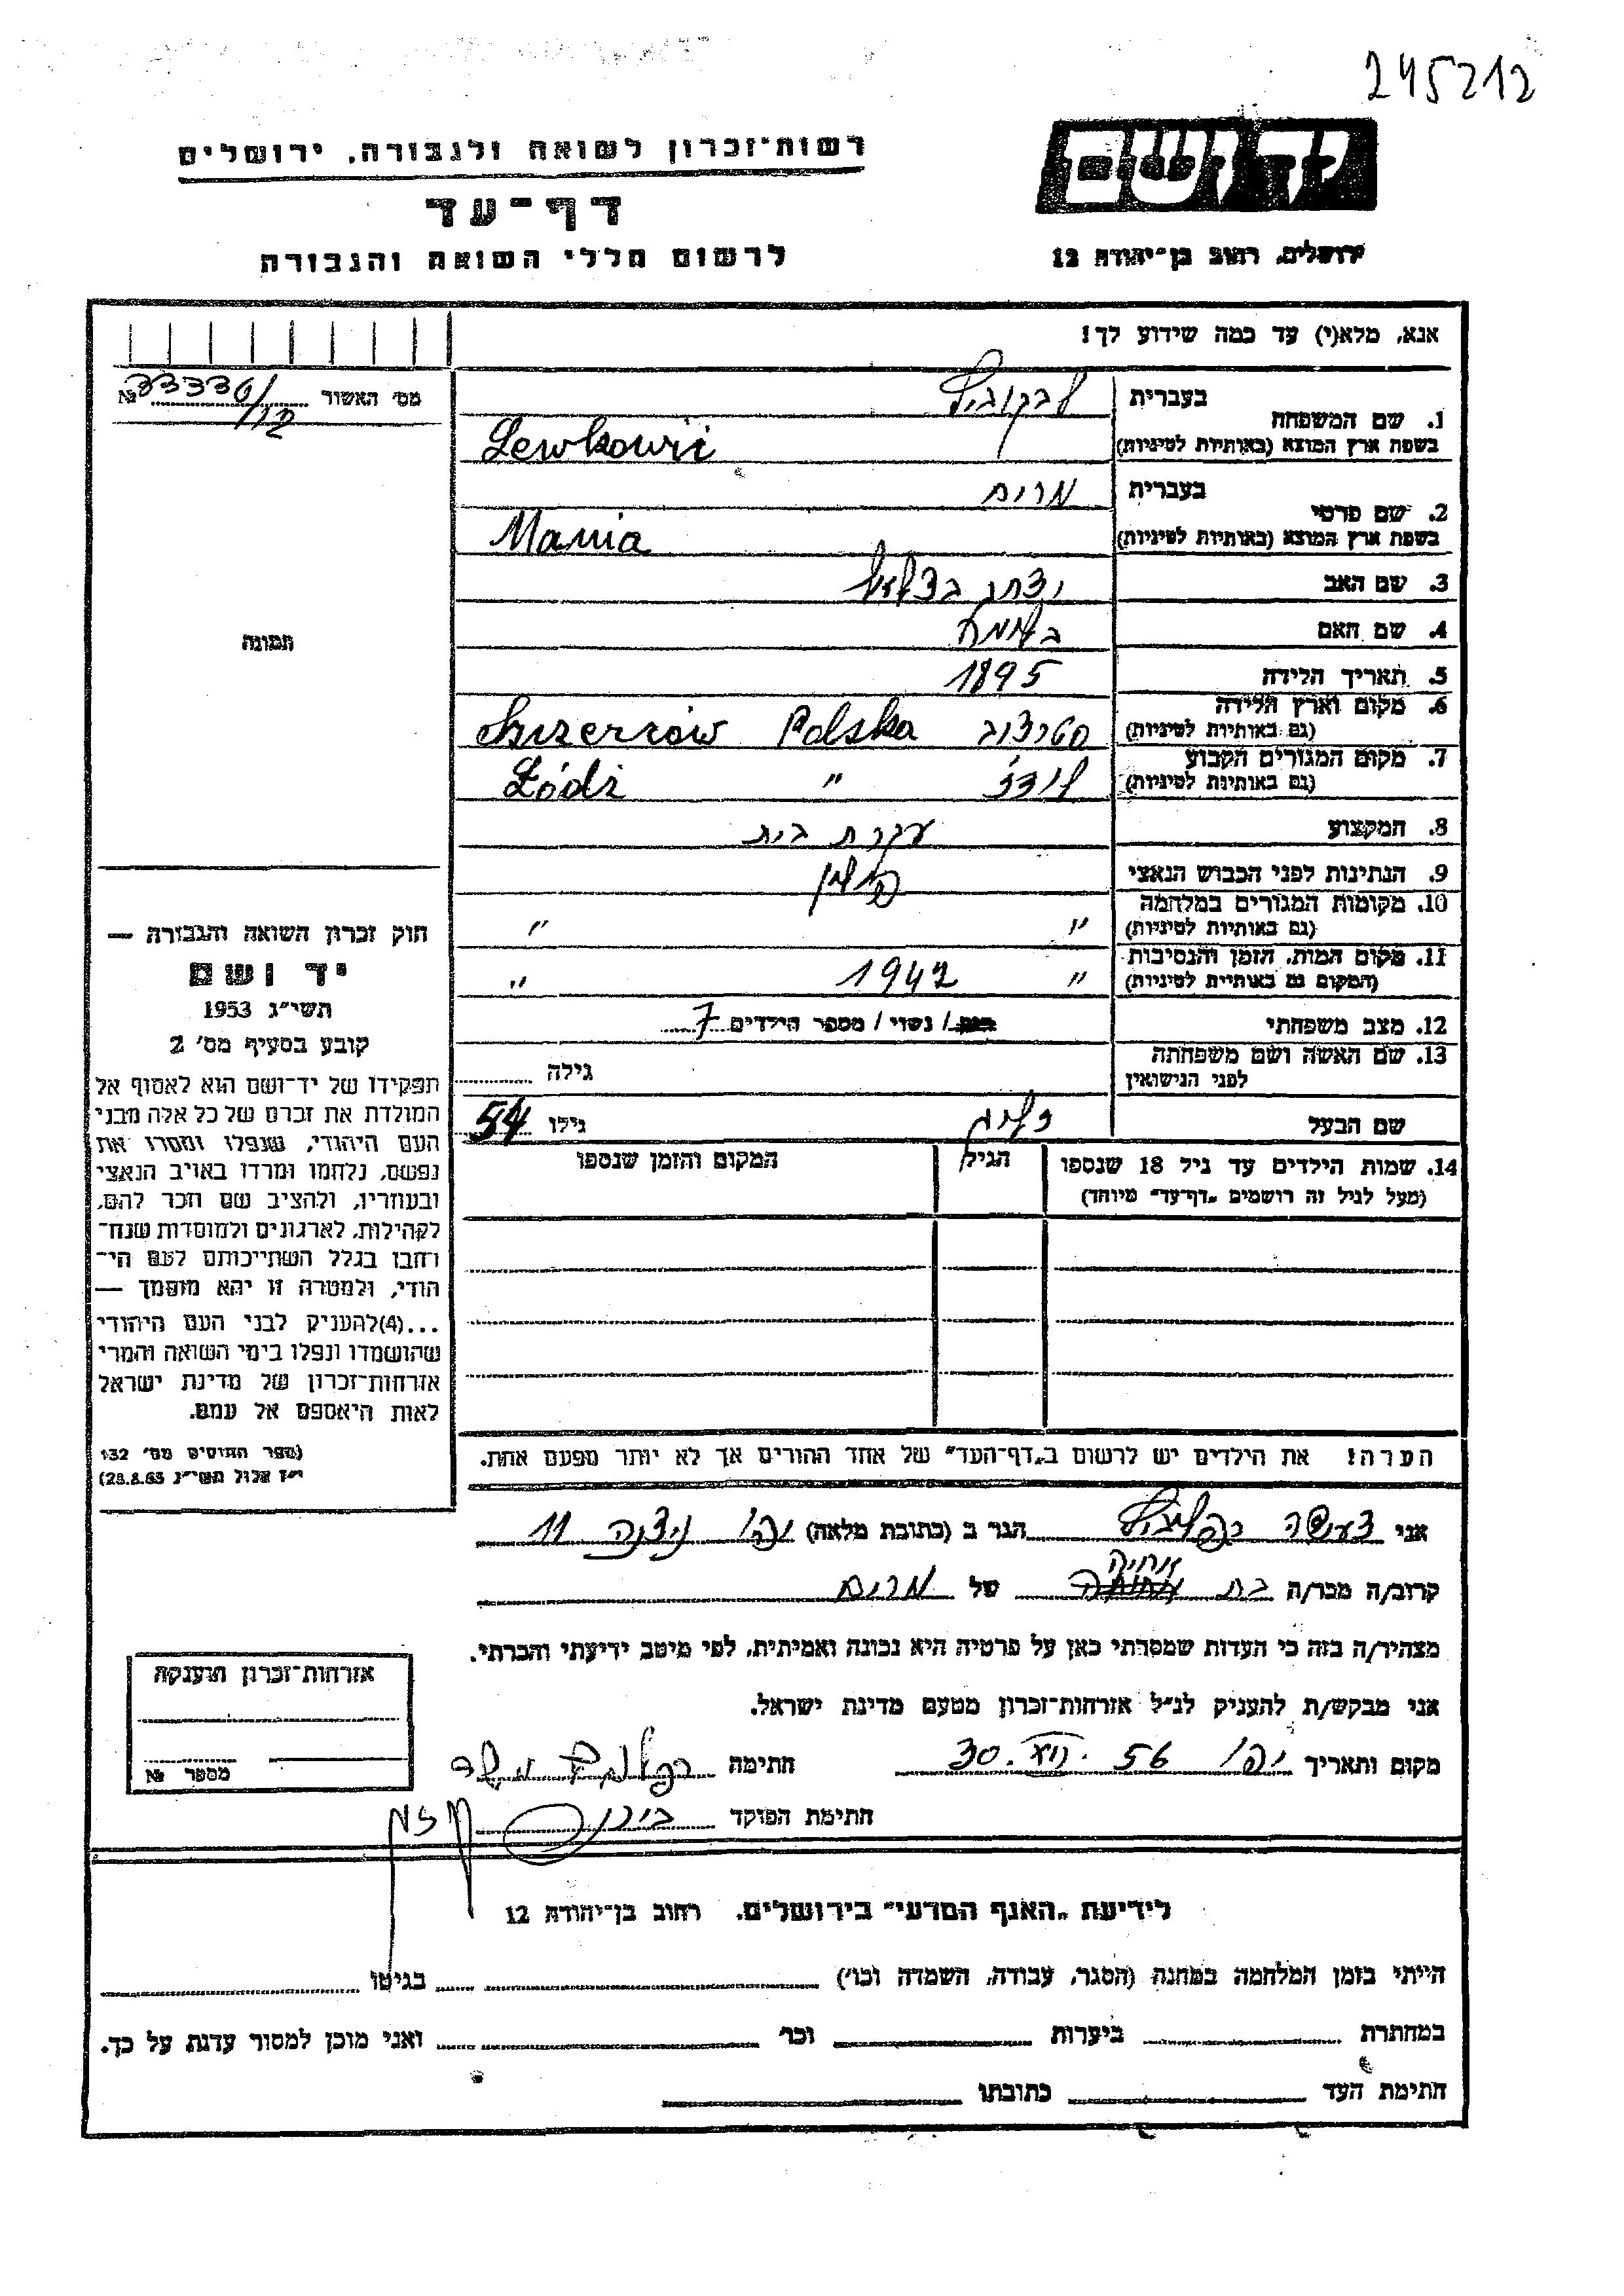 245212
יד ושם
רשות־זכרון לשואה ולגבורה, ירושלים
דף־עד
לרשום חללי השואה והגבורה
ירושלים, רחוב בן־יהודה 12
אנא, מלא(י) עד כמה שידוע לך!
מס' האשור № 33336/
1. שם המשפחה בעברית לבקוביץ
בשפת ארץ המוצא (באותיות לטיניות) Lewkowi
2. שם פרטי בעברית מרים
בשפת ארץ המוצא (באותיות לטיניות) Mania
3. שם האב יצחק בצלאל
4. שם האם
5. תאריך הלידה 1895
6. מקום וארץ הלידה
(גם באותיות לטיניות) Polska
7. מקום המגורים הקבוע
(גם באותיות לטיניות) לודז' " Łódź
8. המקצוע עקרת בית
9. הנתינות לפני הכבוש הנאצי פולין
10. מקומות המגורים במלחמה
(גם באותיות לטיניות) " "
11. מקום המות, הזמן והנסיבות
(המקום גם באותיות לטיניות) " 1942 "
12. מצב משפחתי רווק / נשוי / מספר הילדים 7
13. שם האשה ושם משפחתה
לפני הנישואין גילה
שם הבעל גילו 54
14. שמות הילדים עד גיל 18 שנספו הגיל המקום והזמן שנספו
(מעל לגיל זה רושמים „דף־עד" מיוחד)
הערה! את הילדים יש לרשום ב„דף־העד" של אחד ההורים אך לא יותר מפעם אחת.
תמונה
חוק זכרון השואה והגבורה —
יד ושם
תשי"ג 1953
קובע בסעיף מס' 2
תפקידו של יד־ושם הוא לאסוף אל
המולדת את זכרם של כל אלה מבני
העם היהודי, שנפלו ומסרו את
נפשם, נלחמו ומרדו באויב הנאצי
ובעוזריו, ולהציב שם וזכר להם,
לקהילות, לארגונים ולמוסדות שנח־
רחבו בגלל השתייכותם לעם הי־
הודי, ולמטרה זו יהא מוסמך —
...(4)להעניק לבני העם היהודי
שהושמדו ונפלו בימי השואה והמרי
אזרחות־זכרון של מדינת ישראל
לאות היאספם אל עמם.
(ספר החוקים מס' 132
י"ז אלול תשי"ג 28.8.53)
אני הגר ב (כתובת מלאה) יפו 11
קרוב/ה מכר/ה בת של מרים
מצהיר/ה בזה כי העדות שמסרתי כאן על פרטיה היא נכונה ואמיתית, לפי מיטב ידיעתי והכרתי.
אני מבקש/ת להעניק לנ"ל אזרחות־זכרון מטעם מדינת ישראל.
מקום ותאריך יפו 30. 56 חתימה
חתימת הפוקד
אזרחות־זכרון הוענקה
מספר №
לידיעת „האגף המדעי" בירושלים, רחוב בן־יהודה 12
הייתי בזמן המלחמה במחנה (הסגר, עבודה, השמדה וכו') בגיטו
במחתרת ביערות וכו' ואני מוכן למסור עדות על כך.
חתימת העד כתובתו